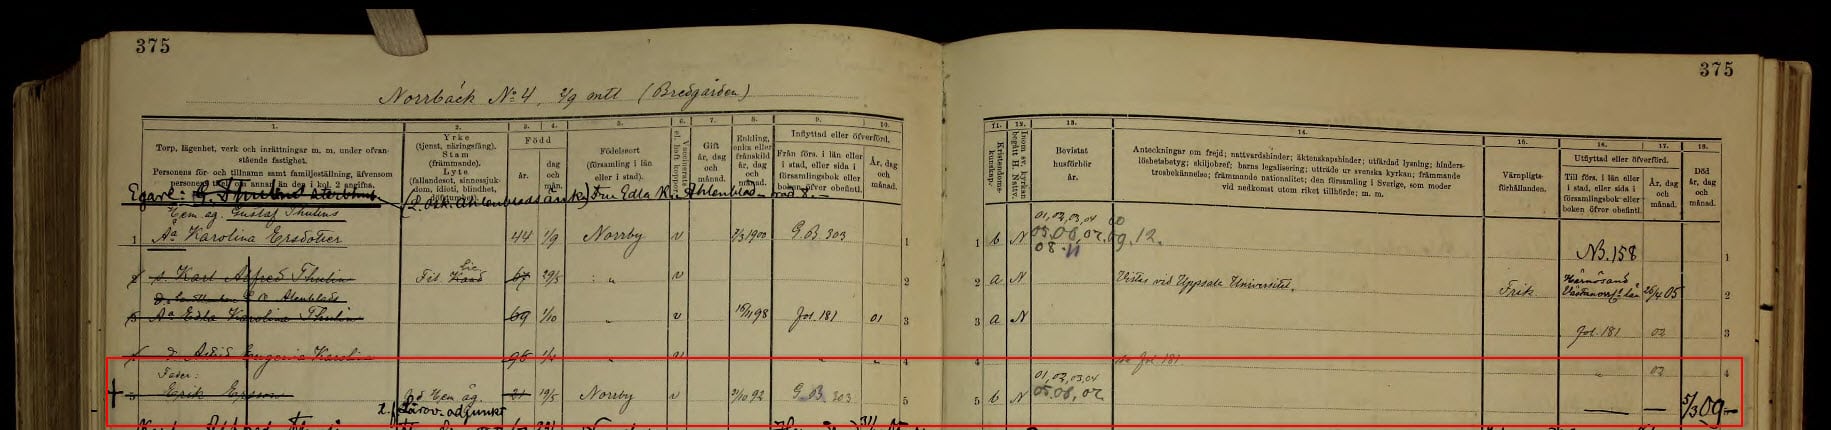 375
375
Norrbäck No 4, 2/9 mtl (Bredgården)
1.
2.
3.
4.
5.
6.
7.
8.
9.
10.
Torp, lägenhet, verk och inrättningar m. m. under ofvanstående fastighet.
Personens för- och tillnamn samt familjeställning, äfvensom
Yrke
(tjenst, näringsfång).
Stam
(främmande).
Lyte
(fallandesot, sinnessjukdom, idioti, blindhet,
Född
år.
dag och mån.
Födelseort
(församling i län eller i stad).
Gift
år, dag och månad.
Enkling, enka eller frånskild
år, dag och månad.
Inflyttad eller öfverförd.
Från förs. i län eller i stad, eller sida i församlingsbok eller boken öfver obefintl.
År, dag och månad.
11.
12.
13.
14.
15.
16.
17.
18.
Kristendomskunskap.
Inom sv. kyrkan begått H. Nattv.
Bevistat husförhör år.
Anteckningar om frejd; nattvardshinder; äktenskapshinder; utfärdad lysning; hinderslöshetsbetyg; skiljobref; barns legalisering; utträde ur svenska kyrkan; främmande trosbekännelse; främmande nationalitet; den församling i Sverige, som moder vid nedkomst utom riket tillhörde; m. m.
Värnpligtsförhållanden.
Utflyttad eller öfverförd.
Till förs. i län eller i stad, eller sida i församlingsbok eller boken öfver obefintl.
År, dag och månad.
Död
år, dag och månad.
Egare: G. Thulins
Fru Edla K. Ahlenblad
Hem. äg. Gustaf Thulins
1 Aa Karolina Ersdotter 44 1/9 Norrby v 2/3 1900 G.B. 303 1
1 b N 01,02,03,04 05,06,07 08 09.12. NB.158 1
s. Karl Alfred Thulin Fil. Kand Lic 67 29/5 " v 2
2 a N Vistas vid Uppsala Universitet. Frik Härnösand Västernorrl. län 26/4 05 2
Aa Edla Karolina Thulin 69 1/10 " v 15/11 98 fol. 181 01 3
3 a N fol. 181 02 3
d. Astrid Eugenia Karolina v " " 4
4 se fol. 181 " 02 4
Fader:
5 Erik Ersson f.d. Hem. äg. 21 19/5 Norrby v 21/10 92 G.B. 303 5
5 b N 01,02,03,04 05,06,07 — — 5/3 09
t.f. Lärov. adjunkt